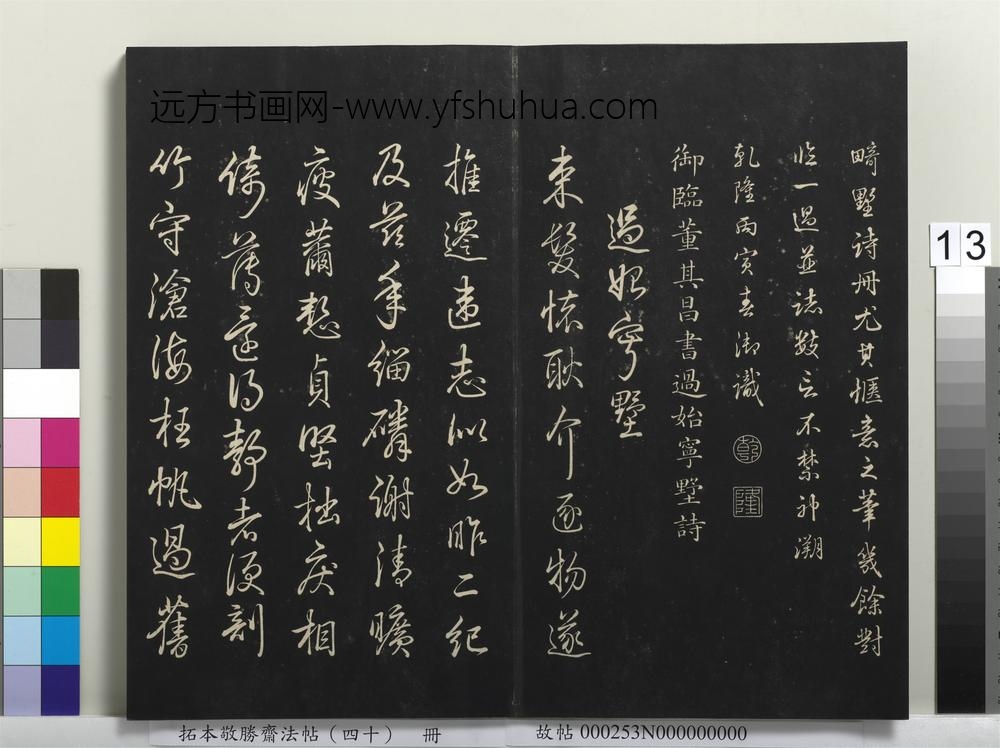 远方书画网-www.yfshuhua.com
畸墅诗冊尤其愜意之筆幾餘對
臨一過並誌數言不禁神溯
乾隆丙寅春御識
乾
隆
御臨董其昌書過始寧墅詩
過始寧墅
束髮懷耿介逐物遂
推遷違志似如昨二紀
及茲年緇磷謝清曠
疲薾慙貞堅拙疾相
倚薄還得靜者便剖
竹守滄海枉帆過舊
13
拓本敬勝齋法帖（四十） 冊
故帖 000253N000000000